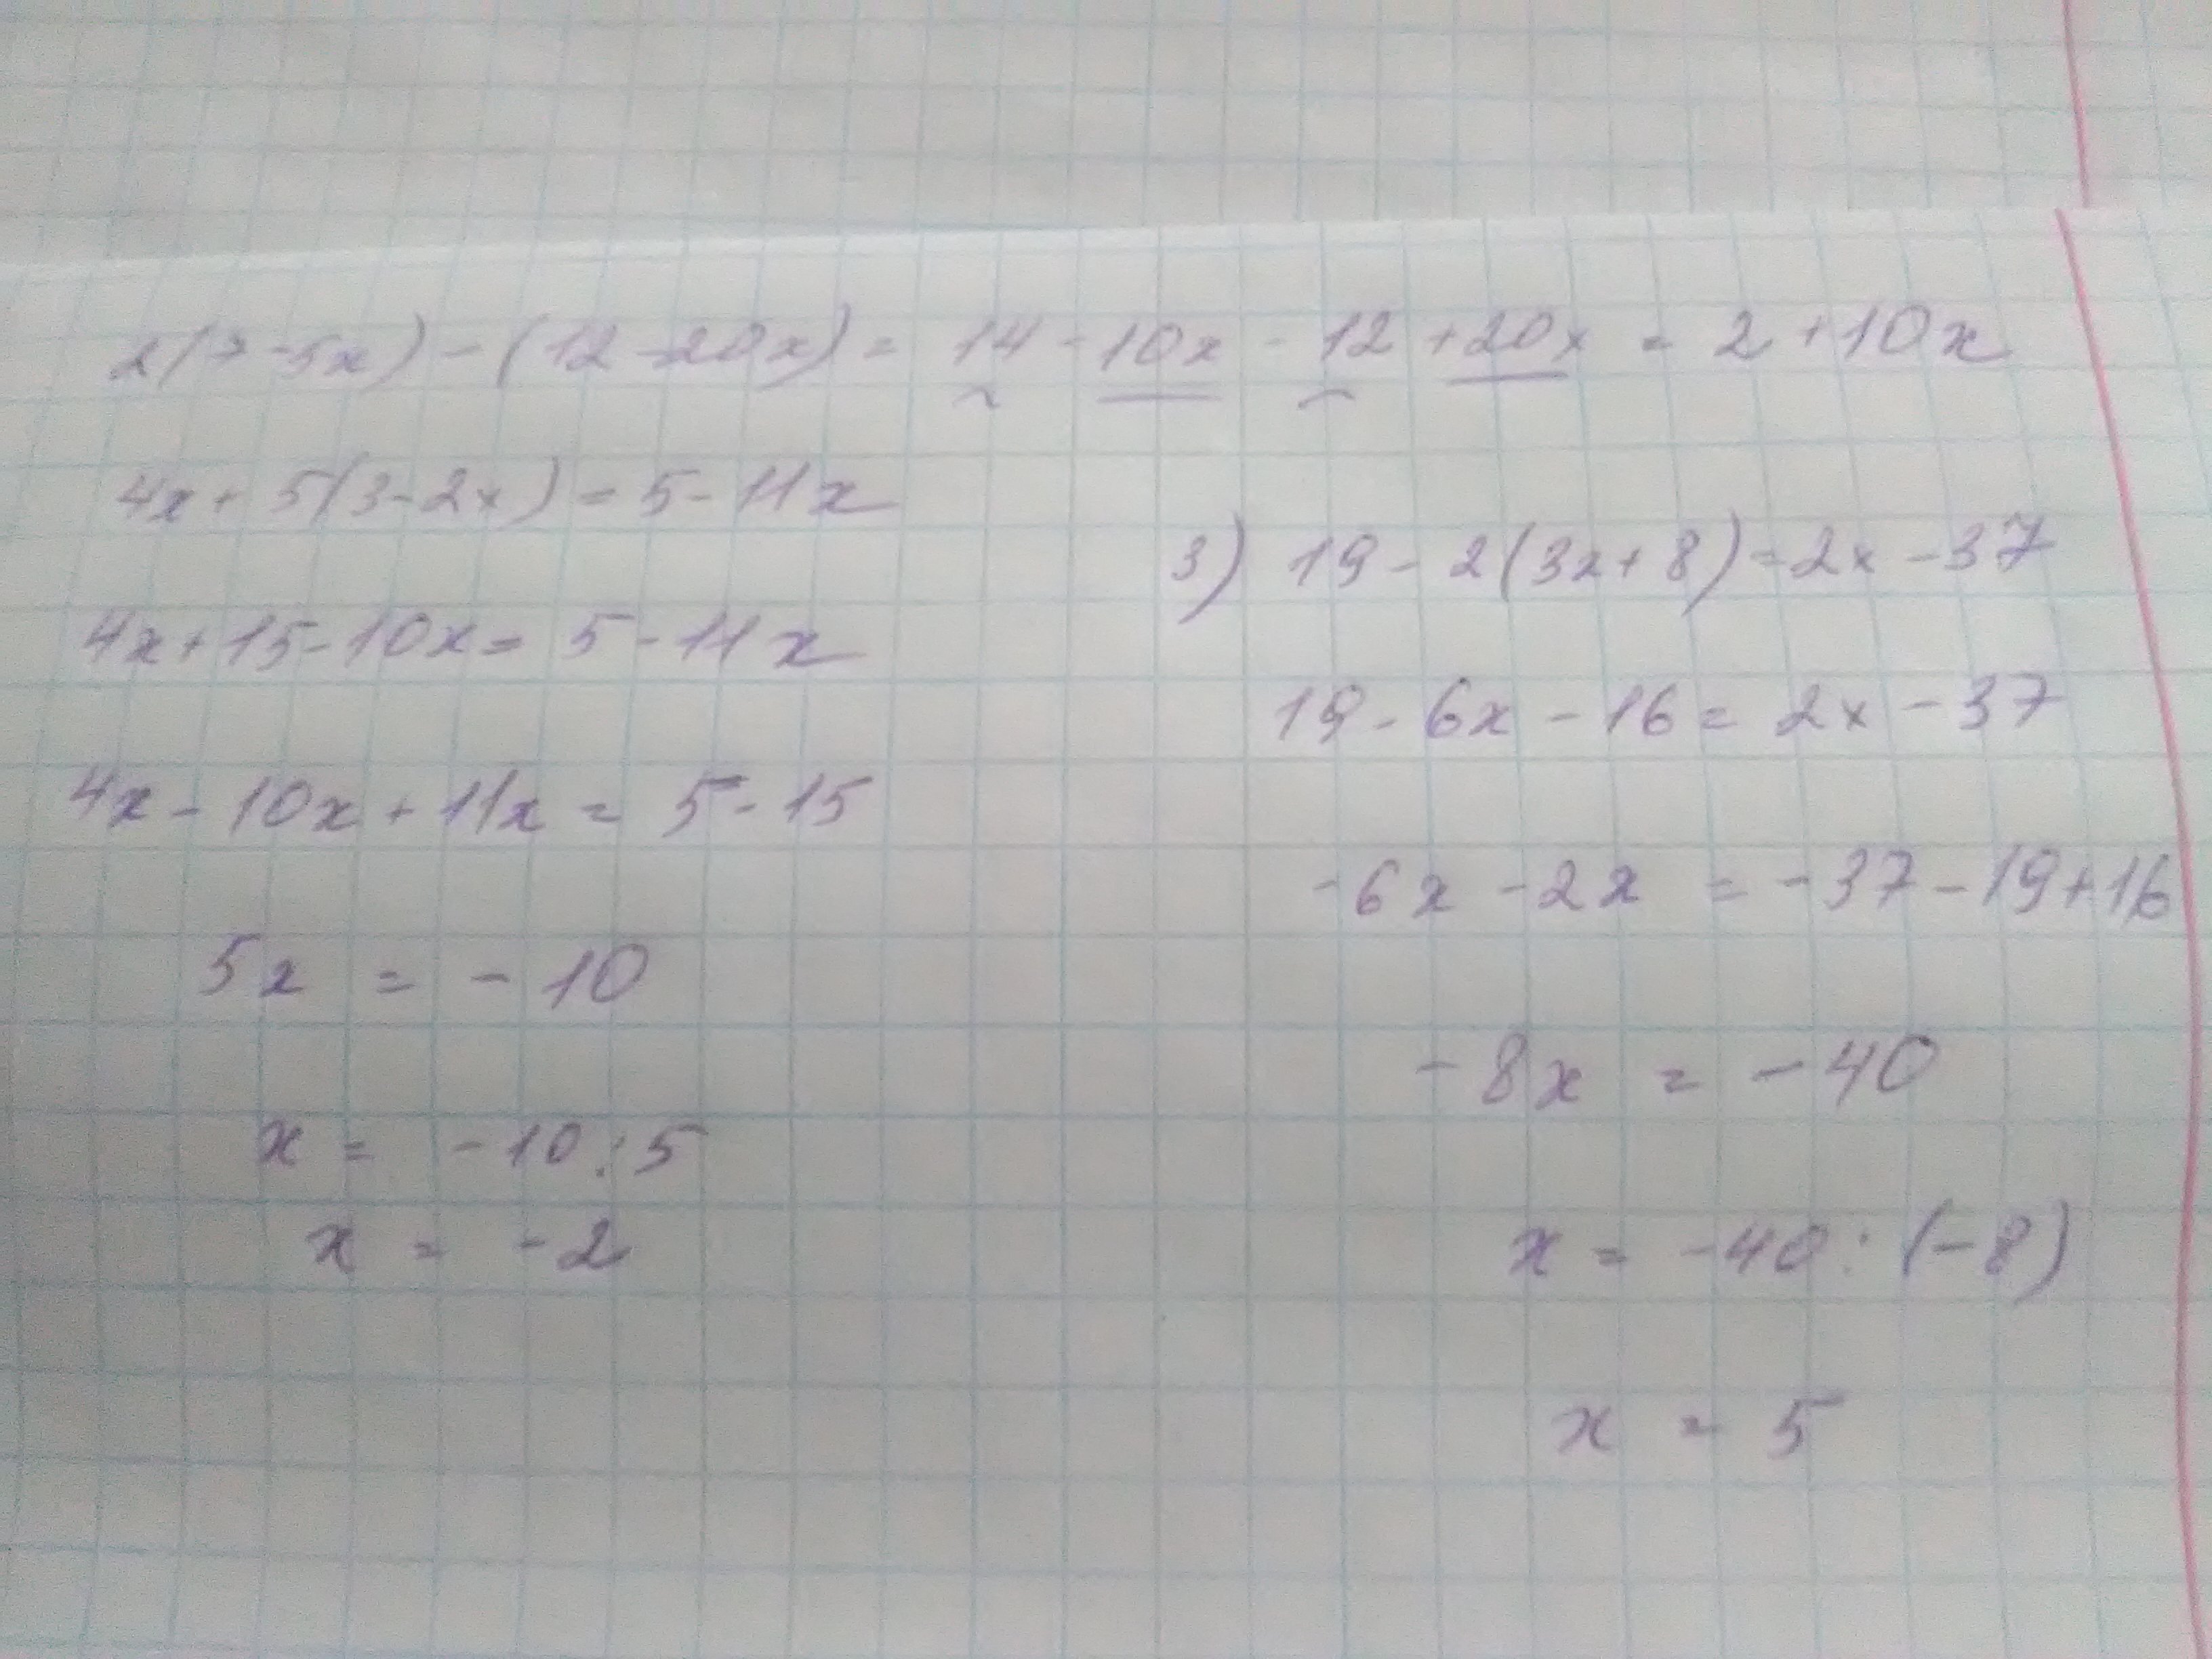 2(7-5x)-(12-20x)= 14-10x-12+20x = 2+10x
4x+5(3-2x)=5-11x
4x+15-10x=5-11x
4x-10x+11x=5-15
5x = -10
x = -10:5
x = -2
3) 19-2(3x+8)=2x-37
19-6x-16=2x-37
-6x-2x = -37-19+16
-8x = -40
x = -40:(-8)
x = 5